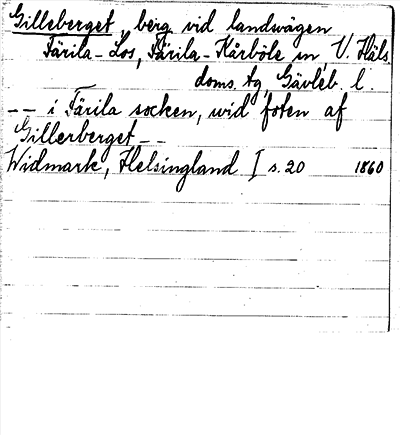 Gilleberget, berg vid landvägen
Färila-Los, Färila-Kårböle m, V. Häls
doms. tg Gävleb. l.
-- i Färila socken, wid foten af
Gillerberget --
Widmark, Helsingland I s. 20 1860